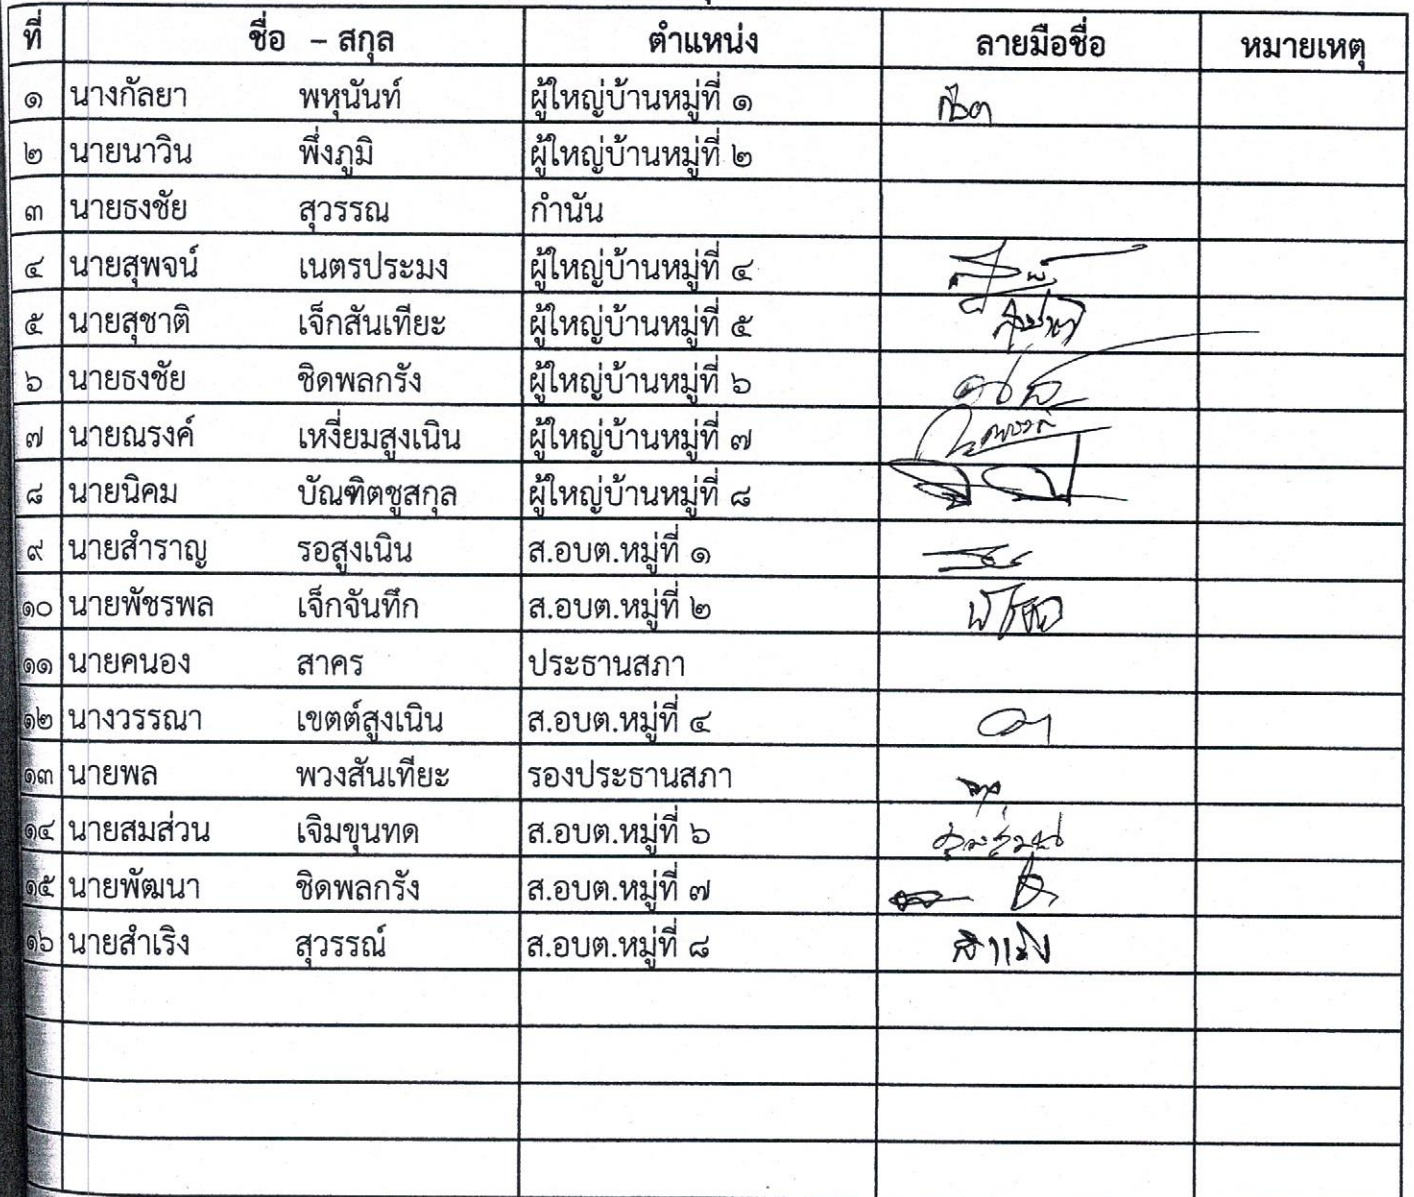 ที่ ชื่อ – สกุล ตำแหน่ง ลายมือชื่อ หมายเหตุ
๑ นางกัลยา พหุนันท์ ผู้ใหญ่บ้านหมู่ที่ ๑
๒ นายนาวิน พึ่งภูมิ ผู้ใหญ่บ้านหมู่ที่ ๒
๓ นายธงชัย สุวรรณ กำนัน
๔ นายสุพจน์ เนตรประมง ผู้ใหญ่บ้านหมู่ที่ ๔
๕ นายสุชาติ เจ็กสันเทียะ ผู้ใหญ่บ้านหมู่ที่ ๕
๖ นายธงชัย ชิดพลกรัง ผู้ใหญ่บ้านหมู่ที่ ๖
๗ นายณรงค์ เหงี่ยมสูงเนิน ผู้ใหญ่บ้านหมู่ที่ ๗
๘ นายนิคม บัณฑิตชูสกุล ผู้ใหญ่บ้านหมู่ที่ ๘
๙ นายสำราญ รอสูงเนิน ส.อบต.หมู่ที่ ๑
๑๐ นายพัชรพล เจ็กจันทึก ส.อบต.หมู่ที่ ๒
๑๑ นายคนอง สาคร ประธานสภา
๑๒ นางวรรณา เขตต์สูงเนิน ส.อบต.หมู่ที่ ๔
๑๓ นายพล พวงสันเทียะ รองประธานสภา
๑๔ นายสมส่วน เจิมขุนทด ส.อบต.หมู่ที่ ๖
๑๕ นายพัฒนา ชิดพลกรัง ส.อบต.หมู่ที่ ๗
๑๖ นายสำเริง สุวรรณ์ ส.อบต.หมู่ที่ ๘